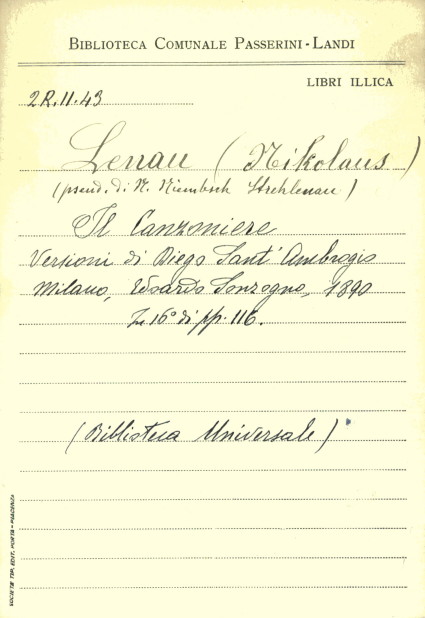 BIBLIOTECA COMUNALE PASSERINI-LANDI
LIBRI ILLICA
2R.11.43
Lenau (Nikolaus)
(pseud. di N. Niembsch Strehlenau)
Il Canzoniere
Versioni di Diego Sant'Ambrogio
Milano, Edoardo Sonzogno, 1890
In 16° di pp. 116.
(Biblioteca Universale)
SOCIETÀ TIP. EDIT. PORTA - PIACENZA